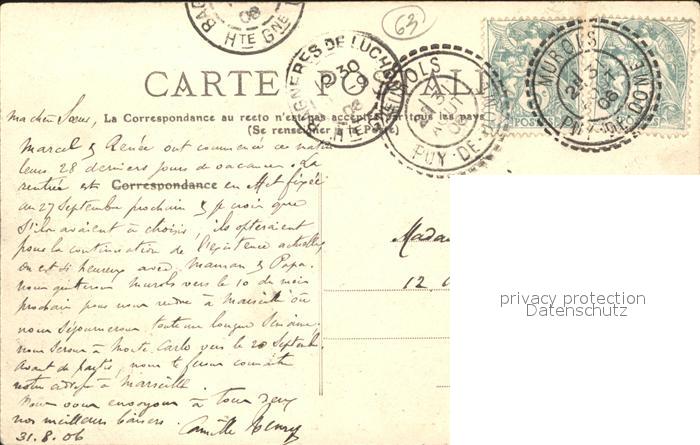 63
CARTE POSTALE
La Correspondance au recto n'est pas acceptée par tous les pays
(Se renseigner à la Poste)
BAGNERES DE LUCHON
HTE GNE
MUROLS
PUY-DE-DOME
MUROLS
PUY-DE-DOME
ma chère Sœur,
Marcel & Renée ont commencé ce matin
leurs 28 derniers jours de vacances. La
rentrée est Correspondance en effet fixée
au 27 Septembre prochain & je crois que
s'ils avaient à choisir, ils opteraient
pour la continuation de l'existence actuelle,
on est si heureux avec Maman & Papa.
nous quitterons Murols vers le 10 du mois
prochain pour nous rendre à Marseille où
nous séjournerons toute une longue Semaine.
nous serons à Monte Carlo vers le 20 Septemb.
Avant de partir, nous te ferons connaître
notre adresse à Marseille.
Nous vous envoyons à tous deux
nos meilleurs baisers. Camille Henry
31.8.06
Mada
12
privacy protection
Datenschutz